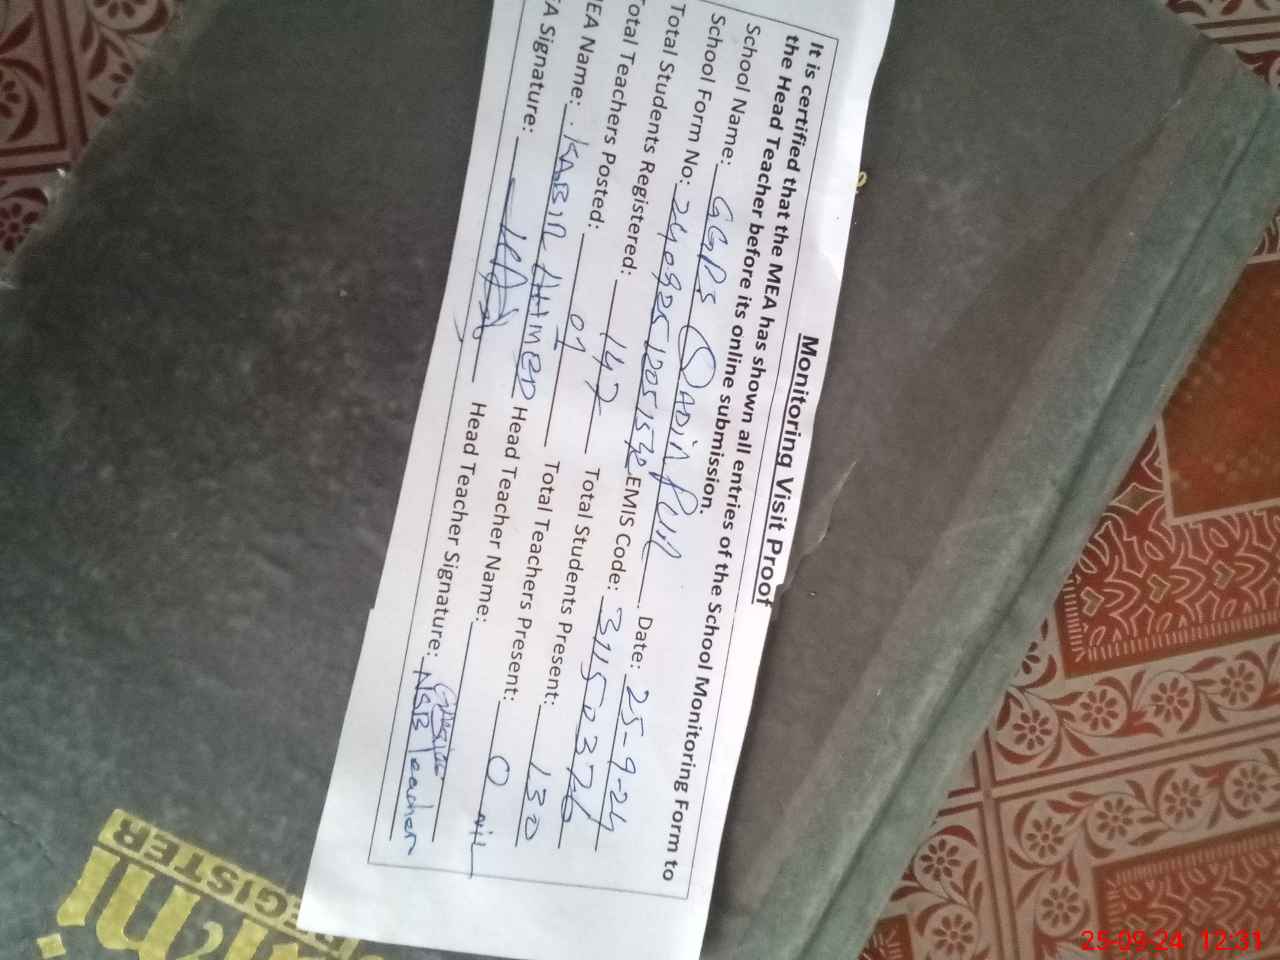 Monitoring Visit Proof
It is certified that the MEA has shown all entries of the School Monitoring Form to
the Head Teacher before its online submission.
School Name: GGPS Qadir Pur. Date: 25-9-24
School Form No: 24092512051530 EMIS Code: 31150376
Total Students Registered: 147 Total Students Present: 130
Total Teachers Posted: 01 Total Teachers Present: 0
MEA Name: KABIR AHMED Head Teacher Name: Nil
A Signature: Head Teacher Signature:
NSB Teacher
REGISTER
25-09-24 12:31